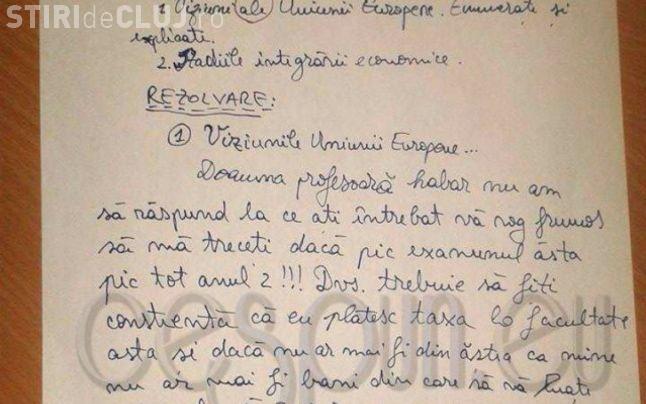 STIRIdeCLUJ.ro
1. Viziunile ale Uniunii Europene. Enumerați și
explicați.
2. Stadiile integrării economice.
REZOLVARE:
① Viziunile Uniunii Europene...
Doamna profesoară habar nu am
să răspund la ce ati întrebat vă rog frumos
să mă treceti dacă pic examenul ăsta
pic tot anul 2 !!! Dvs. trebuie să fiti
constientă că eu plătesc taxa la facultate
asta si dacă nu ar mai fi din ăstia ca mine
nu ar mai fi bani din care să vă luati
cespun.eu